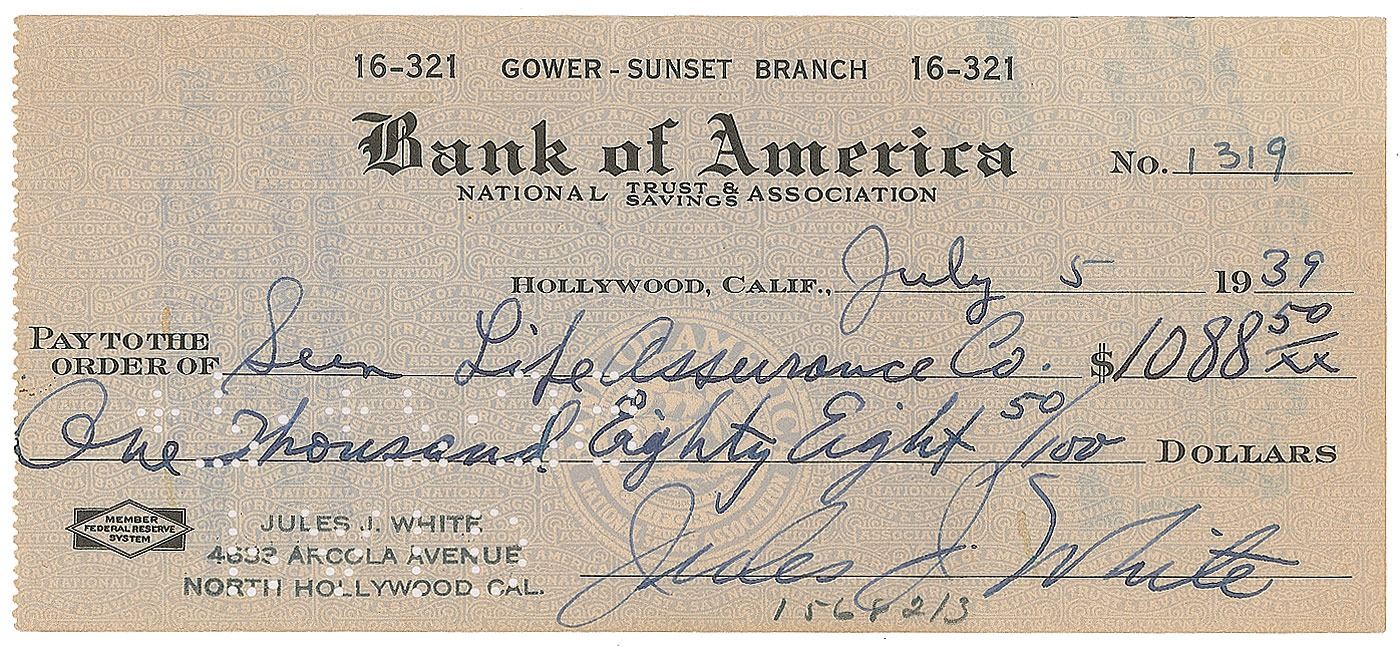 16-321 GOWER-SUNSET BRANCH 16-321
Bank of America
NATIONAL TRUST & SAVINGS ASSOCIATION
No. 1319
HOLLYWOOD, CALIF., July 5 1939
PAY TO THE ORDER OF Sun Life Assurance Co. $1088 50/xx
One Thousand Eighty Eight 50/100 DOLLARS
MEMBER
FEDERAL RESERVE
SYSTEM
JULES J. WHITE
ARCOLA AVENUE
NORTH HOLLYWOOD, CAL.
Jules J. White